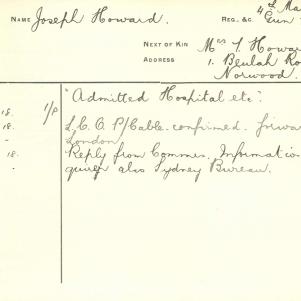 NAME Joseph Howard. REG. &C. 4th Ma
Gun
NEXT OF KIN Mrs T. Howa
ADDRESS 1. Beulah Ro
Norwood.
"Admitted Hospital etc".
18. 1/P
18. L.C.O. P/Cable. confirmed.
- London
18. Reply from Commrs. Information
. given also Sydney Bureau.